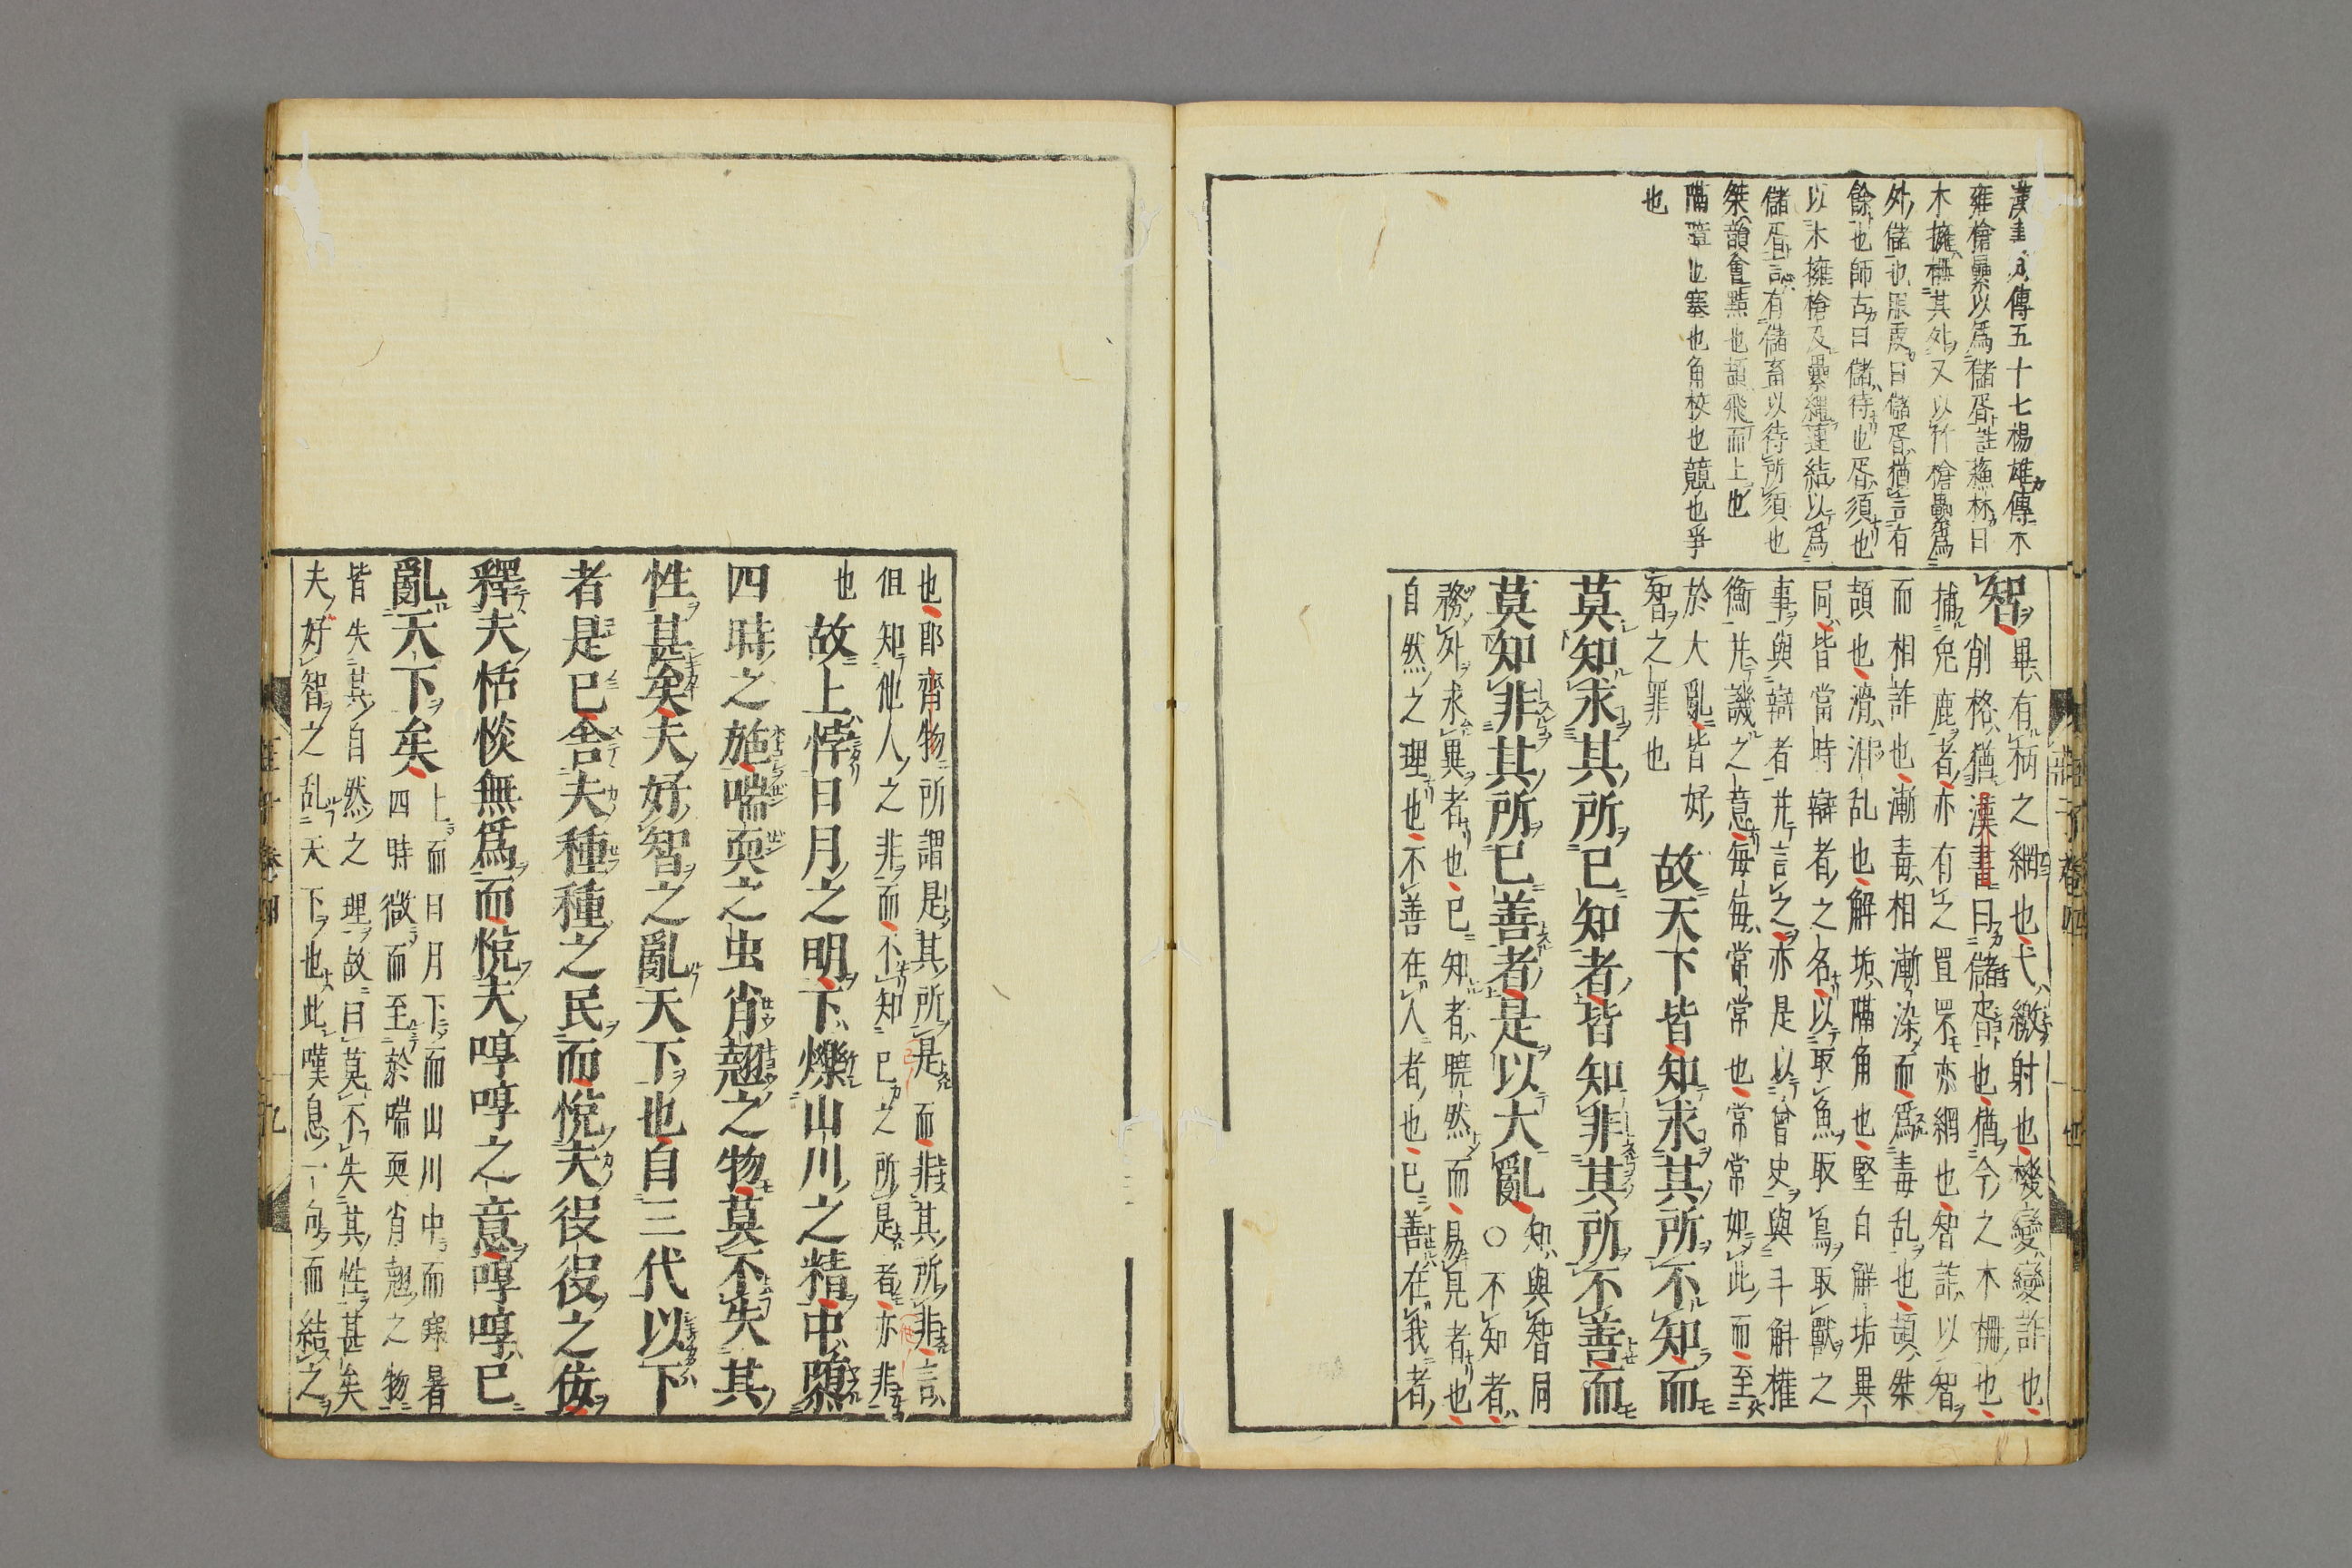 傳五十七楊雄傳木
雍槍纍以爲儲胥註蘓林曰
木擁柵其外又以竹槍纍爲
外儲也服虔曰儲胥猶言有
餘也師古曰儲待也胥須也
以木擁槍及纍繩連結以爲
儲胥言有儲畜以待所須也
桀韻會黠也頡飛而上也
隔也塞也角校也競也爭
也
智畢有柄之網也弋繳射也機變變詐也
削格猶漢書曰儲胥也猶今之木柵也
捕兔鹿者亦有之罝罘亦網也智詐以智
而相詐也漸毒相漸染而爲毒乱也頡桀
頡也滑汨乱也解垢隔角也堅白解垢異
同皆當時辯者之名以取魚取鳥取獸之
事與辯者並言之亦是以曾史與斗斛權
衡並譏之意每每常常也常常如此而至
於大亂皆好
智之罪也
故天下皆知求其所不知而
莫知求其所已知者皆知非其所不善而
莫知非其所已善者是以大亂
知與智同
○不知者
務外求異者也已知者曉然而易見者也
自然之理也不善在人者也已善在我者
也即齊物所謂是其所是而非其所非言
但知他人之非而不知已之所是者亦非
也
故上悖日月之明下爍山川之精中隳
四時之施喘耎之虫肖翹之物莫不失其
性甚矣夫好智之亂天下也自三代以下
者是已舍夫種種之民而悅夫役役之佞
釋夫恬惔無爲而悅夫啍啍之意啍啍已
亂天下矣
上而日月下而山川中而寒暑
四時微而至於喘耎肖翹之物
皆失其自然之理故曰莫不失其性甚矣
夫好智之乱天下也此嘆息一句而結之